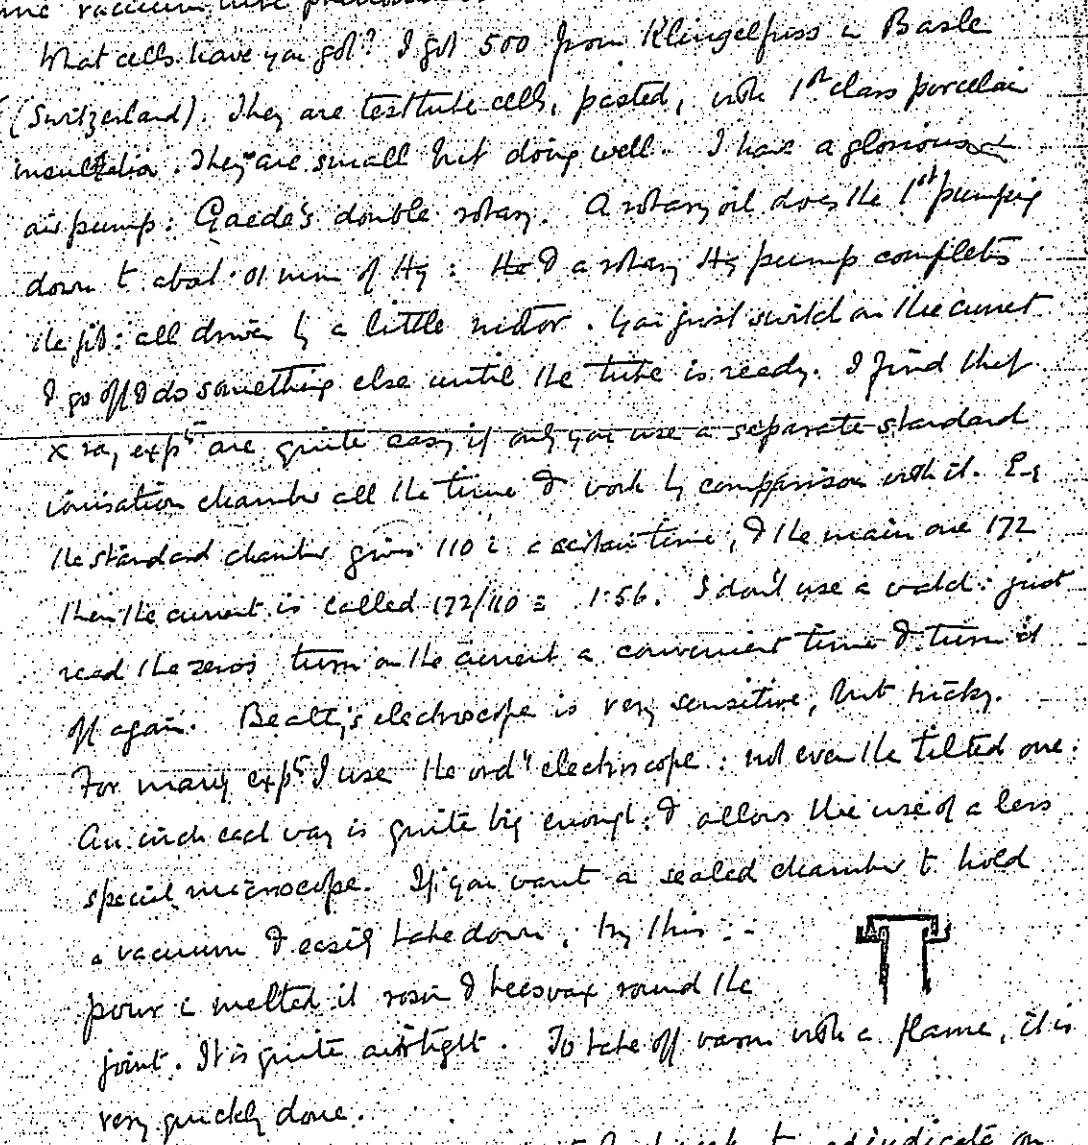 vacuum tube
What cells have you got? I got 500 from Klingelfuss in Basle
(Switzerland). They are testtube cells, pasted, with 1st class porcelain
insulation. They are small but doing well. I have a glorious
air pump: Gaede's double rotary. A rotary oil does the 1st pumping
down to about .01 mm of Hg: & a rotary Hg pump completes
the job: all driven by a little motor. You just switch on the current
& go off & do something else until the tube is ready. I find that
X ray expts are quite easy if only you use a separate standard
ionisation chamber all the time & work by comparison with it. E.g
the standard chamber gives 110 in a certain time, & the main one 172
then the current is called 172/110 = 1.56. I don't use a watch: just
read the zeros turn on the current a convenient time & turn it
off again. Beatty's electroscope is very sensitive, but tricky.
For many expts I use the ordy electroscope: not even the tilted one.
An inch each way is quite big enough: & allows the use of a less
special microscope. If you want a sealed chamber to hold
a vacuum & easily take down, try this:-
pour in melted rosin & beeswax round the
joint. It is quite airtight. To take off warm with a flame, it is
very quickly done.
to adjudicate on